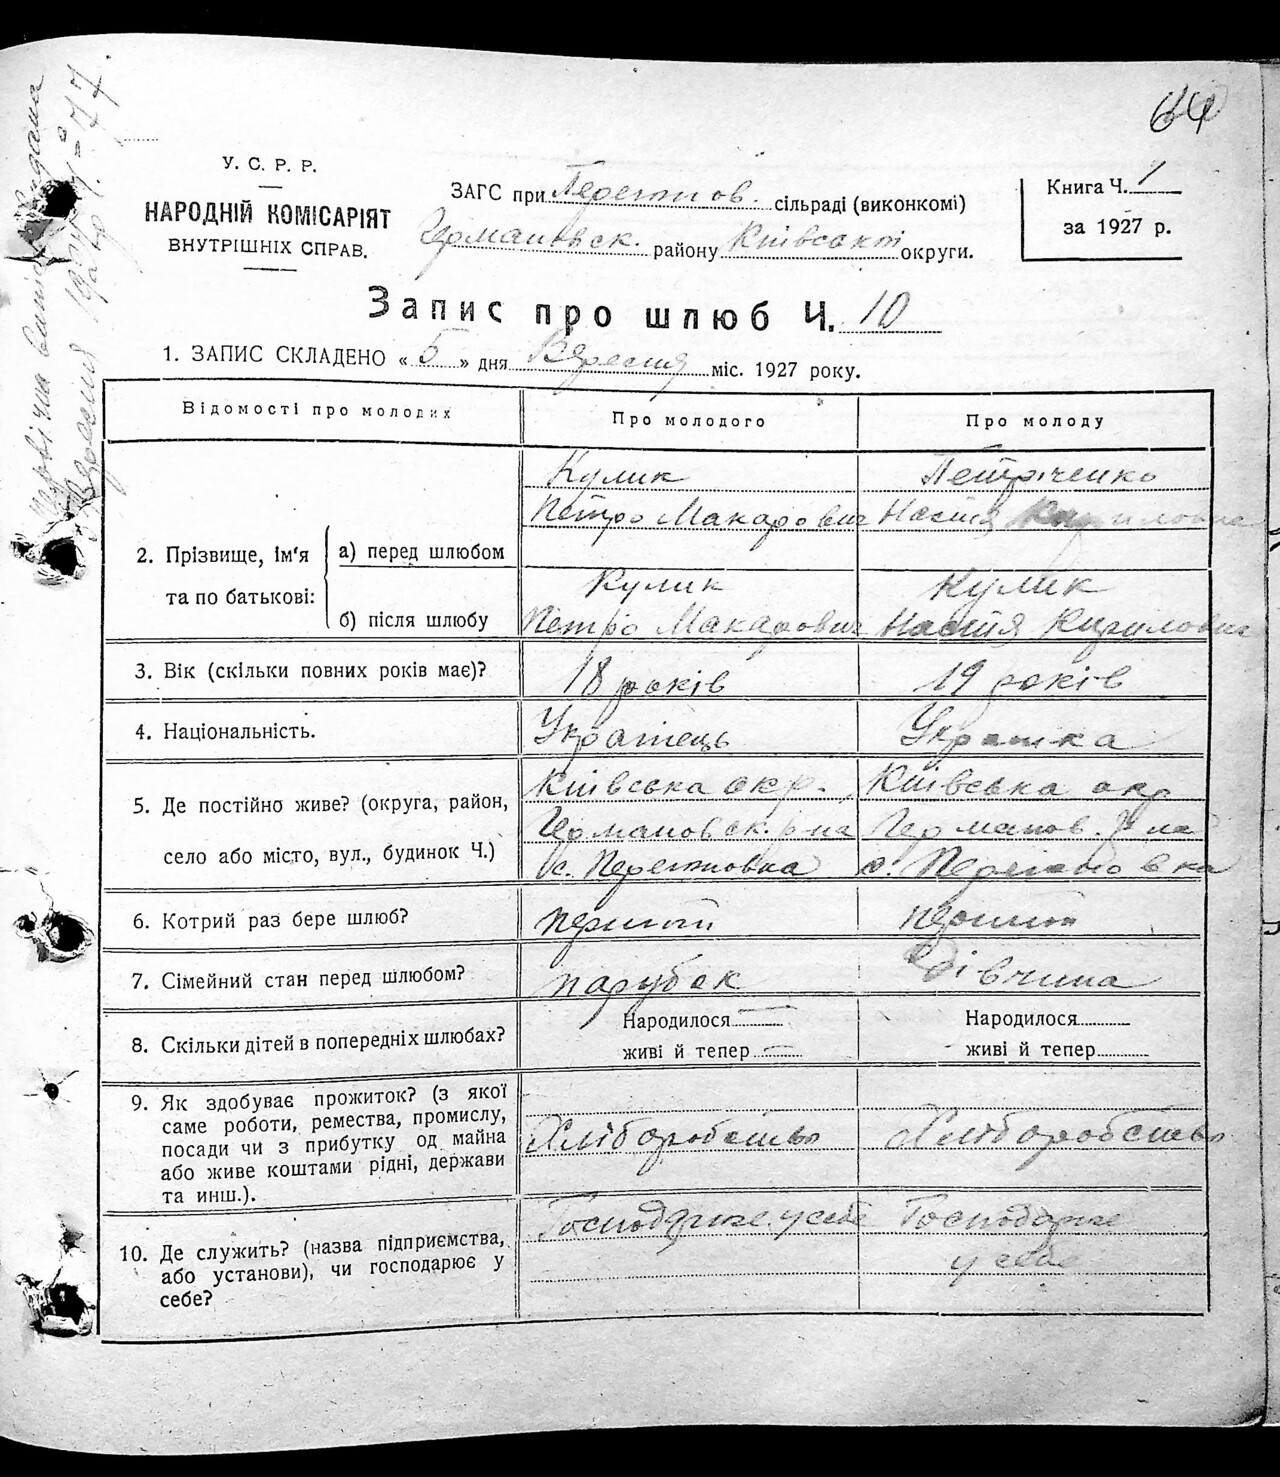 64
У. С. Р. Р.
НАРОДНІЙ КОМІСАРІЯТ
ВНУТРІШНІХ СПРАВ.
ЗАГС при Перегонов. сільраді (виконкомі)
Германовск. району Київської округи.
Книга Ч. 1
за 1927 р.
Запис про шлюб Ч. 10
1. ЗАПИС СКЛАДЕНО « 5 » дня Вересня міс. 1927 року.
Відомості про молодих
Про молодого
Про молоду
2. Прізвище, ім'я та по батькові:
а) перед шлюбом
Кулик
Петро Макарович
Петриченко
Настя Кириловна
б) після шлюбу
Кулик
Петро Макарович
Кулик
Настя Кириловна
3. Вік (скільки повних років має)?
18 років
19 років
4. Національність.
Українець
Українка
5. Де постійно живе? (округа, район,
село або місто, вул., будинок Ч.)
Київська окр.
Германовск. р-на
с. Перегоновка
Київська окр
Германов. р-на
с. Перегоновка
6. Котрий раз бере шлюб?
перший
перший
7. Сімейний стан перед шлюбом?
парубок
дівчина
8. Скільки дітей в попередніх шлюбах?
Народилося —
живі й тепер —
Народилося
живі й тепер
9. Як здобуває прожиток? (з якої
саме роботи, ремества, промислу,
посади чи з прибутку од майна
або живе коштами рідні, держави
та инш.).
Хліборобство
Хліборобство
10. Де служить? (назва підприємства,
або установи), чи господарює у
себе?
Господарює у себе
Господарює
у себе